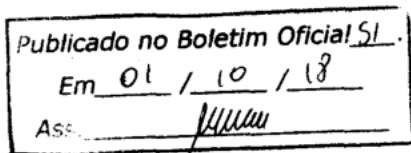 Publicado no Boletim Oficial SI.
Em 01 / 10 / 18
Ass.